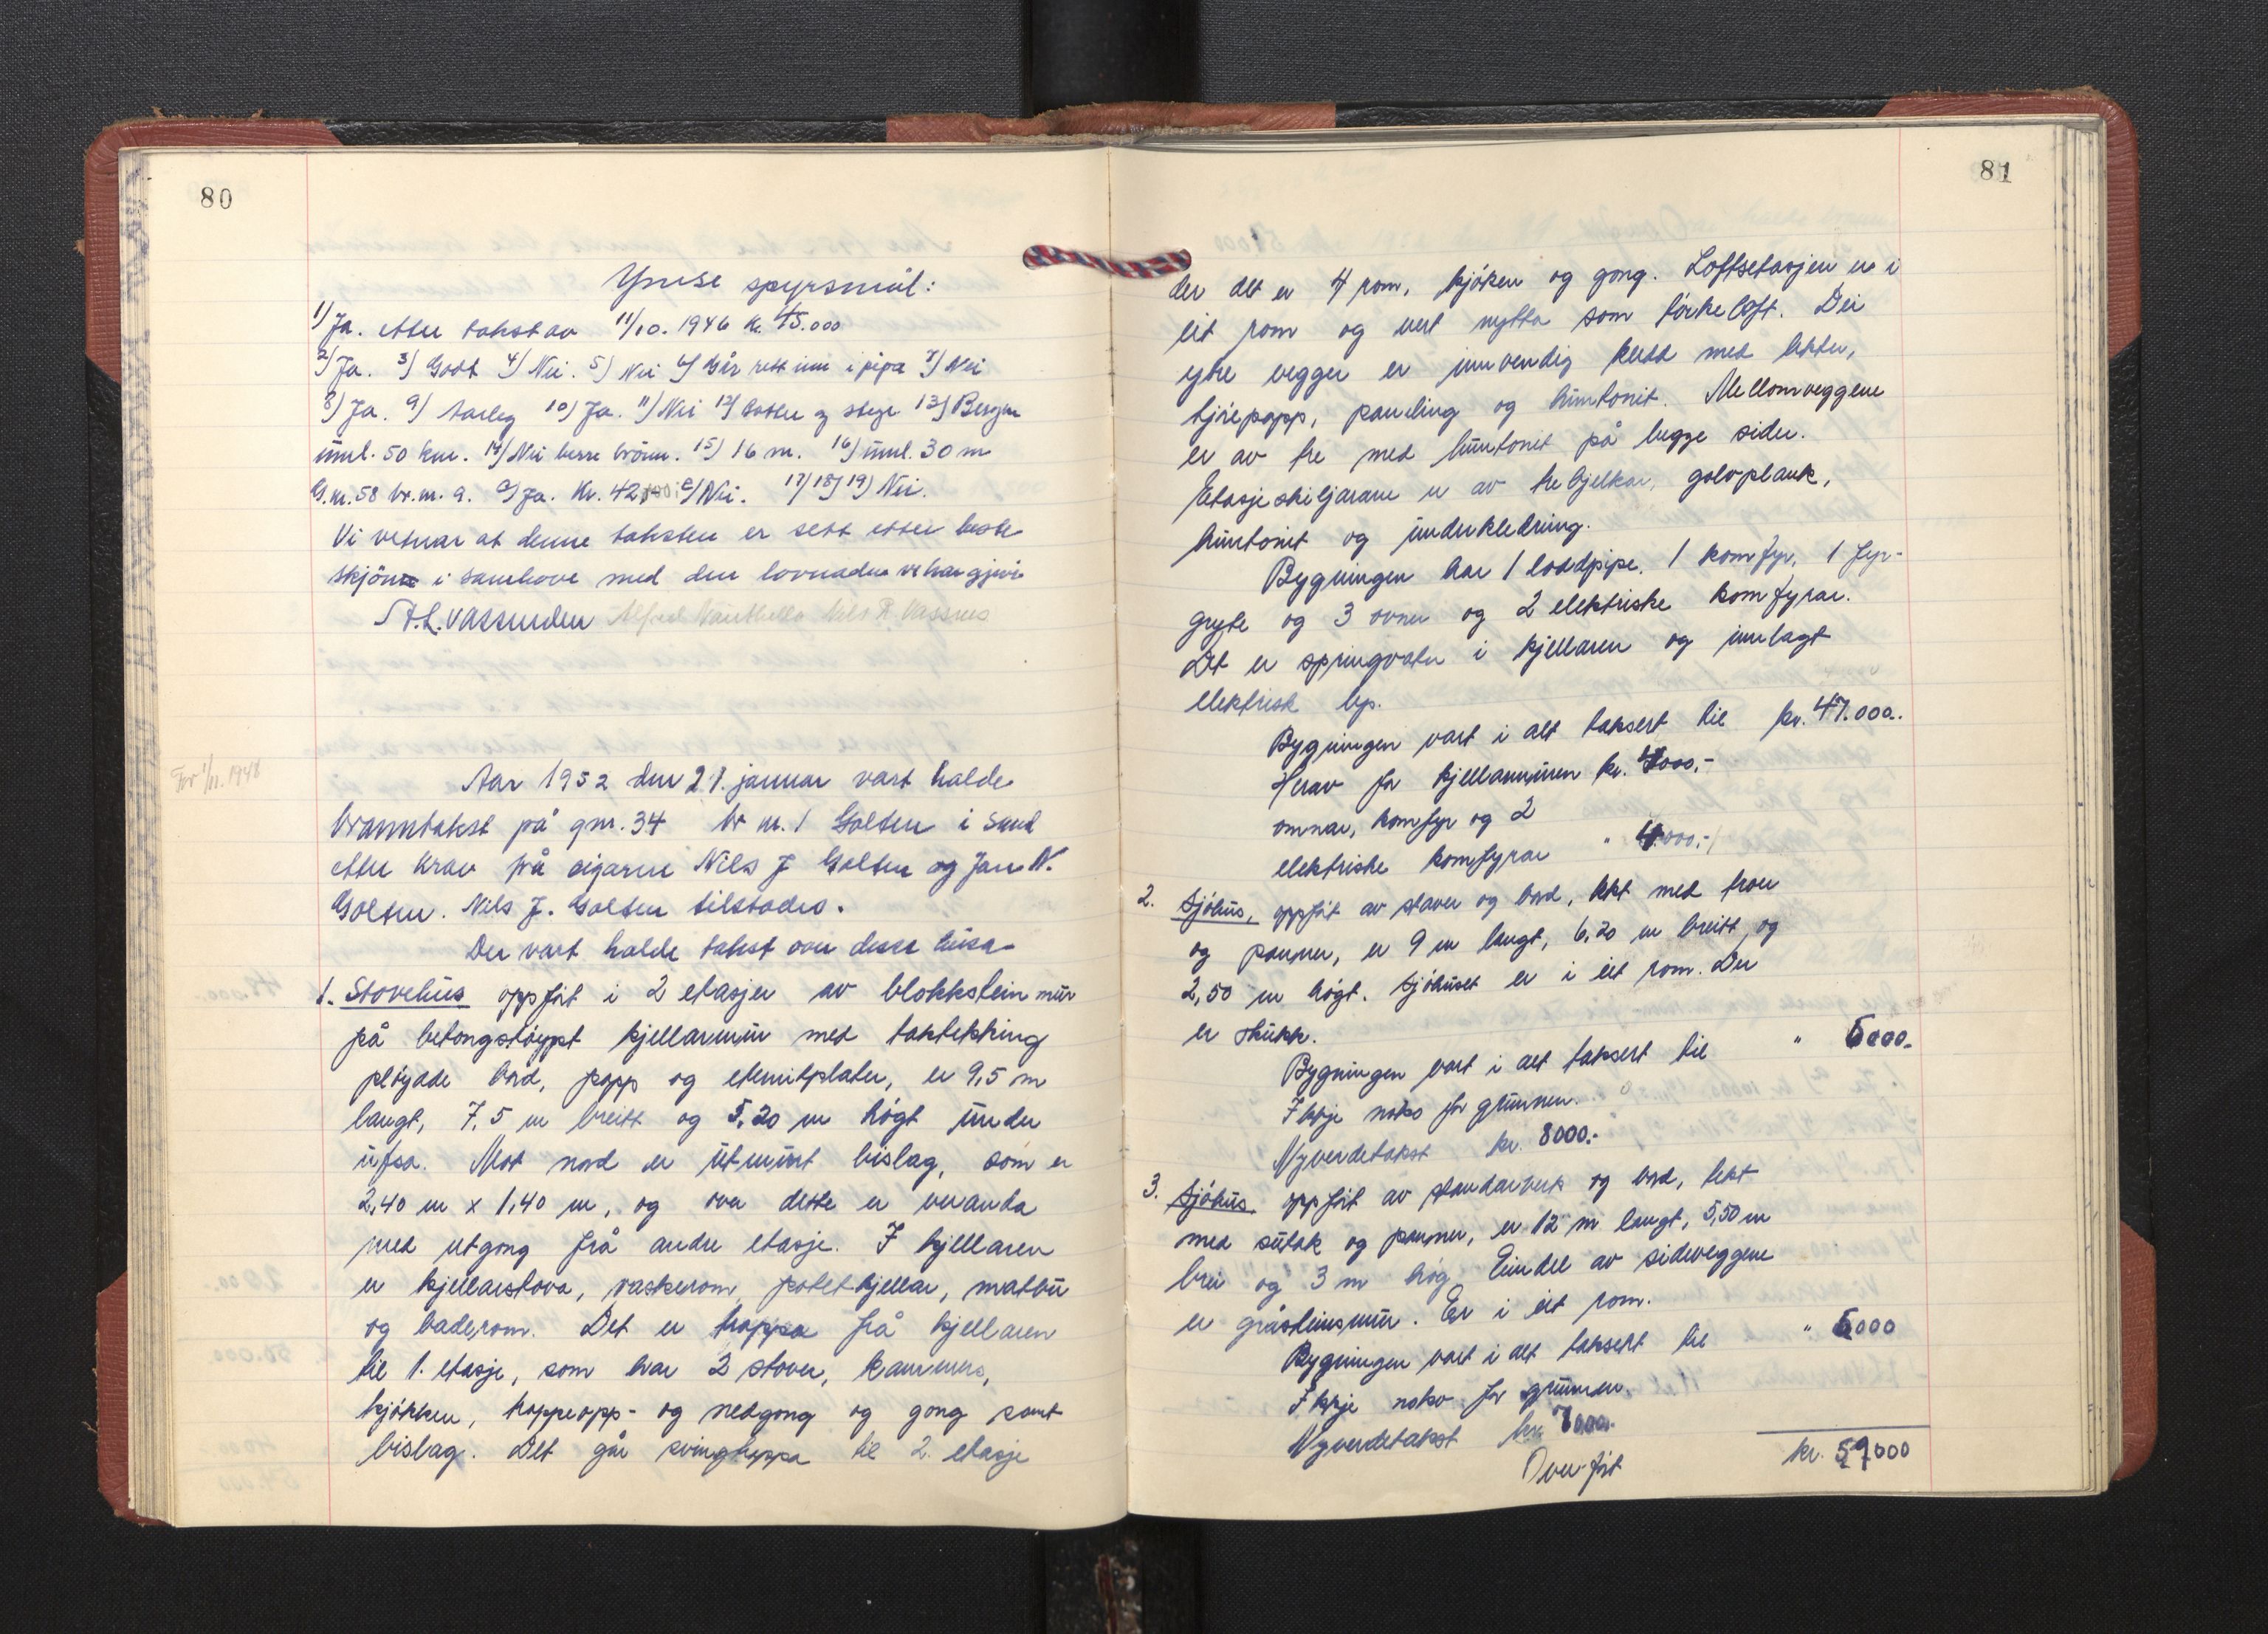 80
Ymse spyrsmål:
1) Ja. etter takst av 11/10. 1946 kr. 45.000
2) Ja. 3) Godt 4) Nei. 5) Nei 6) Går rett inn i pipa 7) Nei
8) Ja. 9) Farleg 10) Ja. 11) Nei 12) bøtter og stege 13) Bergen
uml. 50 km. 14) Nei berre brönn. 15) 16 m. 16) uml. 30 m
G.nr. 58 br.nr. 9. a) Ja. Kr. 42 c) Nei. 17) 18) 19) Nei.
Vi vetnar at denne taksten er sett etter beste
skjön i samhøve med den lovnaden vi har gjevi
A.L. Vassenden Alfred Nils R Vassnes
For 1/11. 1948
Aar 1952 den 21. januar vart halde
branntakst på gnr. 34 br nr. 1 Golten i Sund
etter krav frå eigarne Nils J Golten og Jan N.
Golten. Nils J. Golten tilstades.
Der vart halde takst over desse husa
1. Stovehus oppfört i 2 etasjer av blokkstein mur
på betongstöypt kjellarmur med taktekking
plöyade bord, papp og eternitplater, er 9,5 m
langt, 7,5 m breitt og 5,20 m högt under
ufsa. Mot nord er utmurt bislag, som er
2,40 m x 1,40 m, og over dette er veranda
med utgong frå andre etasje. I kjellaren
er kjellarstova, vaskerom, potetkjellar, matbu
og baderom. Det er trappa frå kjellaren
til 1. etasje, som har 2 stover, kammers,
kjökken, trappeopp- og nedgong og gong samt
bislag. Det går svingtrappa til 2. etasje
81
der det er 4 rom, kjöken og gong. Loftsetasjen er i
eit rom og vert nytta som törkeloft. Dei
ytre vegger er innvendig kledd med lekter,
tjörepapp, paneling og huntonit. Mellomveggene
er av tre med huntonit på begge sider.
Etasjeskiljarane er av trebjelkar, golvplank,
huntonit og underkledning.
Bygningen har 1 loddpipe, 1 komfyr, 1 fyr-
gryte og 3 ovner og 2 elektriske komfyrar.
Det er springvatn i kjellaren og innlagt
elektrisk lys.
Bygningen vart i alt taksert til kr. 47.000.
Herav for kjellarmuren kr. 000,-
omnar, komfyr og 2
elektriske komfyrar " 4.000,-
2. Sjöhus, oppfört av staver og bord, tekt med troer
og panner, er 9 m langt, 6,20 m breitt, og
2,50 m högt. Sjöhuset er i eit rom. Der
er skukk.
Bygningen vart i alt taksert til " 6000.
Ikkje noko for grunnen.
Nyverdetakst kr. 8000.-
3. Sjöhus, oppfört av standarverk og bord, tekt
med sutak og panner, er 12 m langt, 5,50 m
brei og 3 m hög. Eindel av sideveggene
er gråsteinsmur. Er i eit rom.
Bygningen vart i alt taksert til " 6000
Ikkje noko for grunnen.
Nyverdetakst kr. 7000.
Overfört kr. 59000